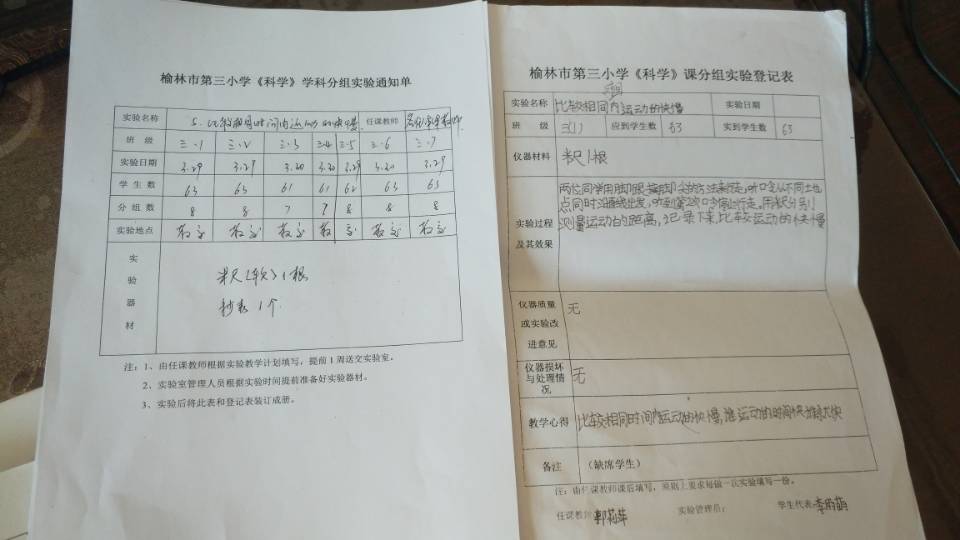 榆林市第三小学《科学》学科分组实验通知单
实验名称 5、比较相同时间内运动的快慢 任课教师
班 级 三·1 三·2 三·3 三·4 三·5 三·6 三·7
实验日期 3.29 3.29 3.30 3.30 3.29 3.30 3.29
学生数 63 65 61 61 62 63 63
分组数 8 8 7 9 8 8 8
实验地点 教室 教室 教室 教室 教室 教室 教室
实验器材
米尺(软)1根
秒表 1个
注:1、由任课教师根据实验教学计划填写,提前1周送交实验室。
2、实验室管理人员根据实验时间提前准备好实验器材。
3、实验后将此表和登记表装订成册。
榆林市第三小学《科学》课分组实验登记表
实验名称 比较相同时间内运动的快慢 实验日期
班 级 三(1) 应到学生数 63 实到学生数 63
仪器材料 米尺1根
实验过程及其效果
两位同学用脚跟接脚尖的方法来行走,听口令从不同
点同时沿直线出发,听到第2次口令停止行走。用
测量运动的距离,记录下来,比较运动的快慢
仪器质量或实验改进意见 无
仪器损坏与处理情况 无
教学心得 比较相同时间内运动的快慢,
备注 (缺席学生)
注:由任课教师课后填写,原则上要求每做一次实验填写一份。
任课教师: 郭莉萍 实验管理员: 学生代表: